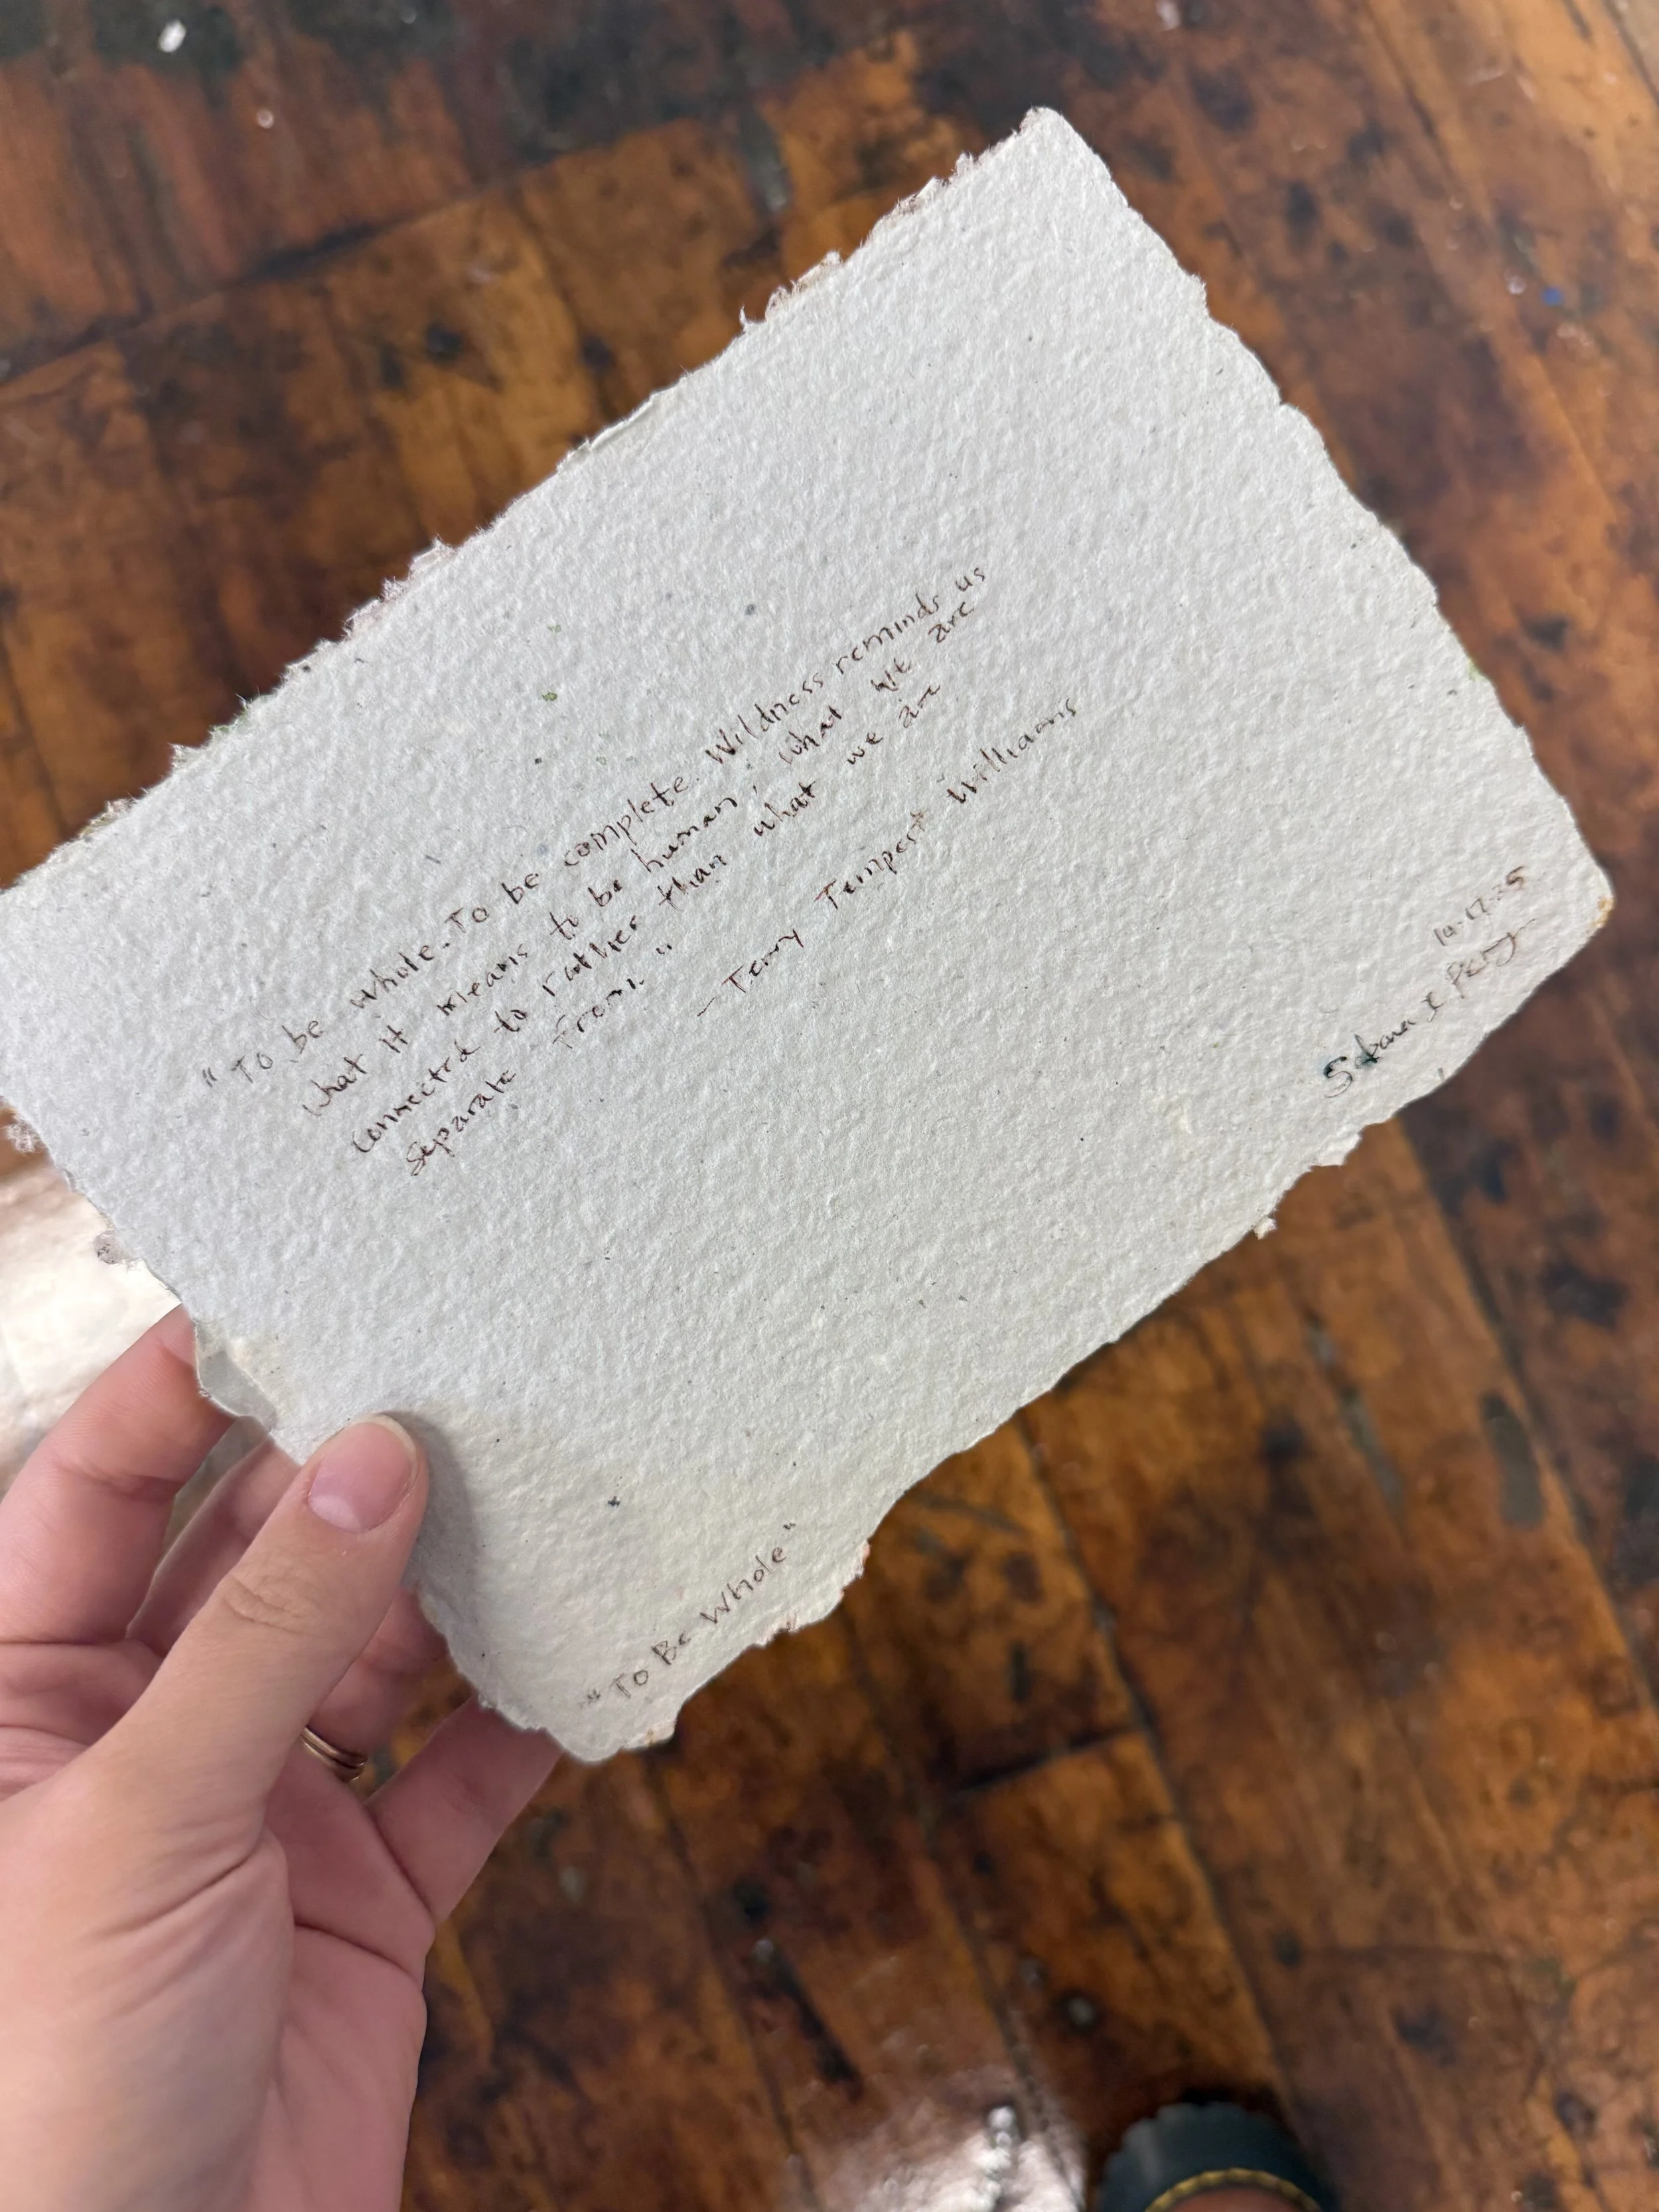 "To be whole. To be complete. Wildness reminds us
what it means to be human, what we are
connected to rather than what we are
separate from."
- Terry Tempest Williams
10.17.25
"To Be Whole"